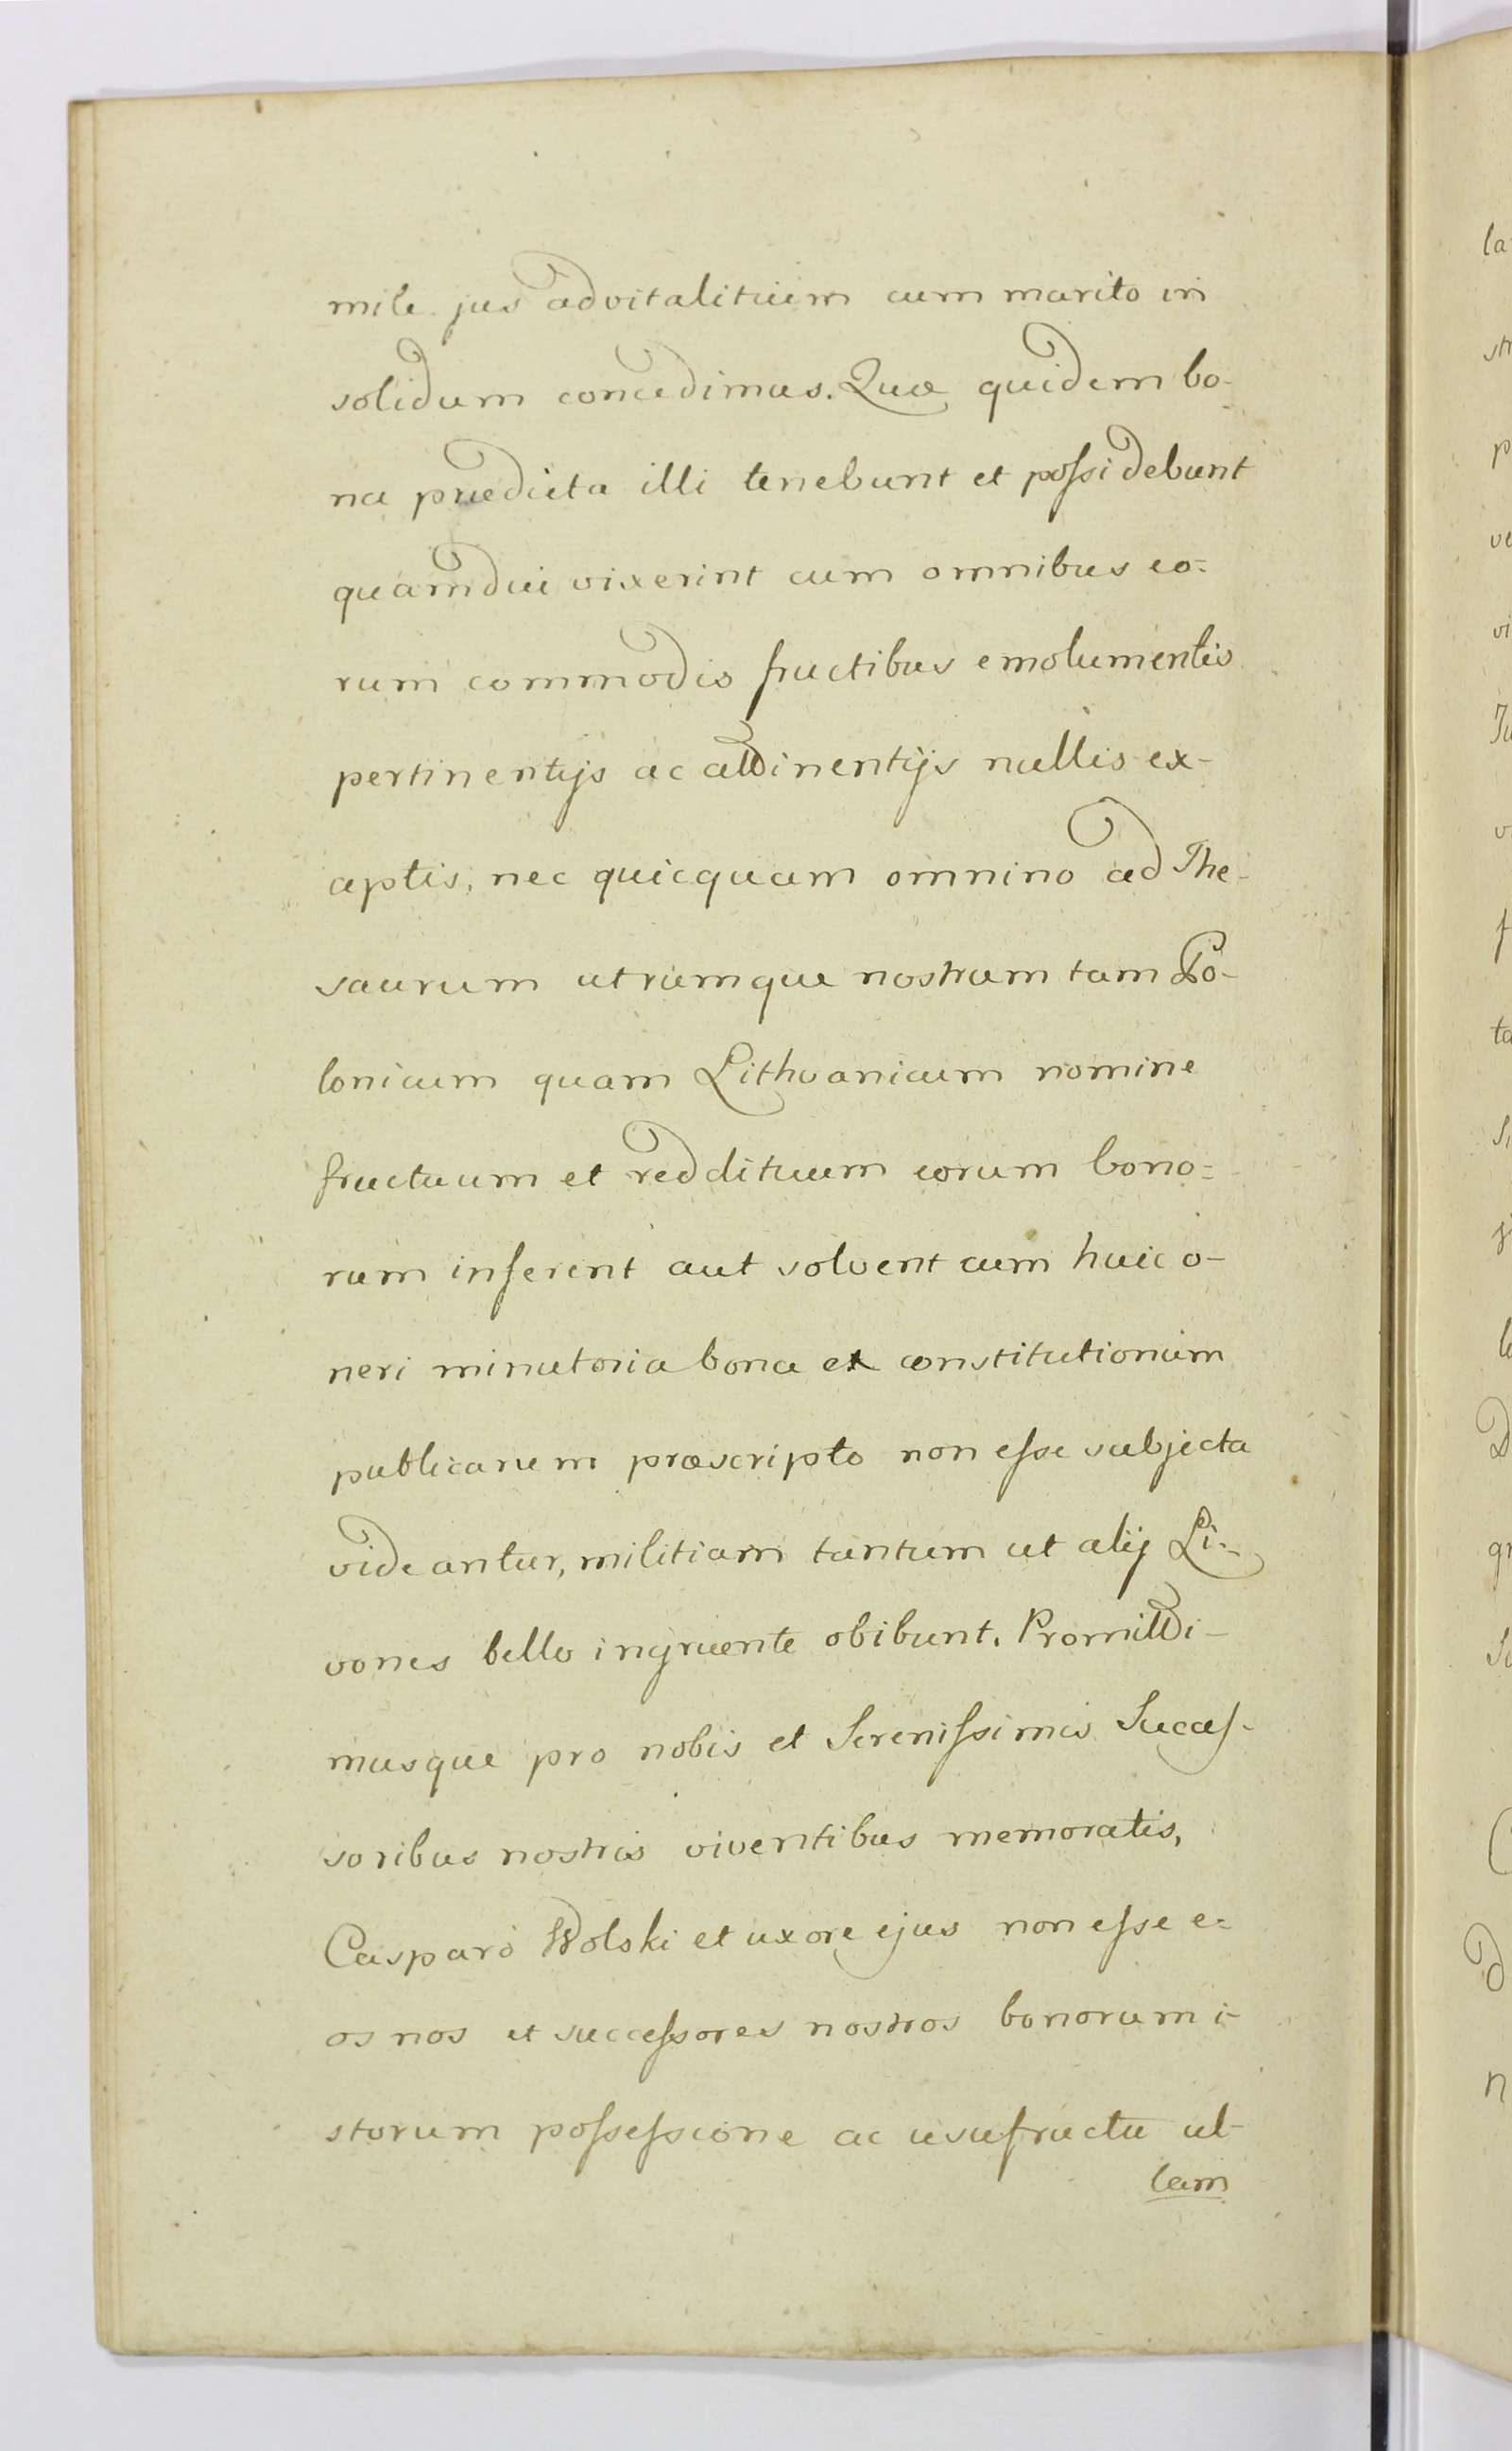 mile jus advitalitium cum marito in
solidum concedimus. Quæ quidem bo-
na prædicta illi tenebunt et possidebunt
quamdiu vixerint cum omnibus eo=
rum commodis fructibus emolumentis
pertinentijs ac attinentijs nullis ex-
ceptis, nec quicquam omnino ad The-
saurum utrumque nostrum tam Po-
lonicum quam Lithvanicum nomine
fructuum et reddituum eorum bono=
rum inferent aut solvent cum huic o-
neri minutoria bona ex constitutionum
publicarum præscripto non esse subjecta
videantur, militiam tantum ut alij Li-
vones bello ingruente obibunt. Promitti-
musque pro nobis et Serenissimis Succes-
soribus nostris viventibus memoratis,
Casparo Wolski et uxore ejus non esse e=
os nos et successores nostros bonorum i-
storum possessione ac usufructu ul-
lam